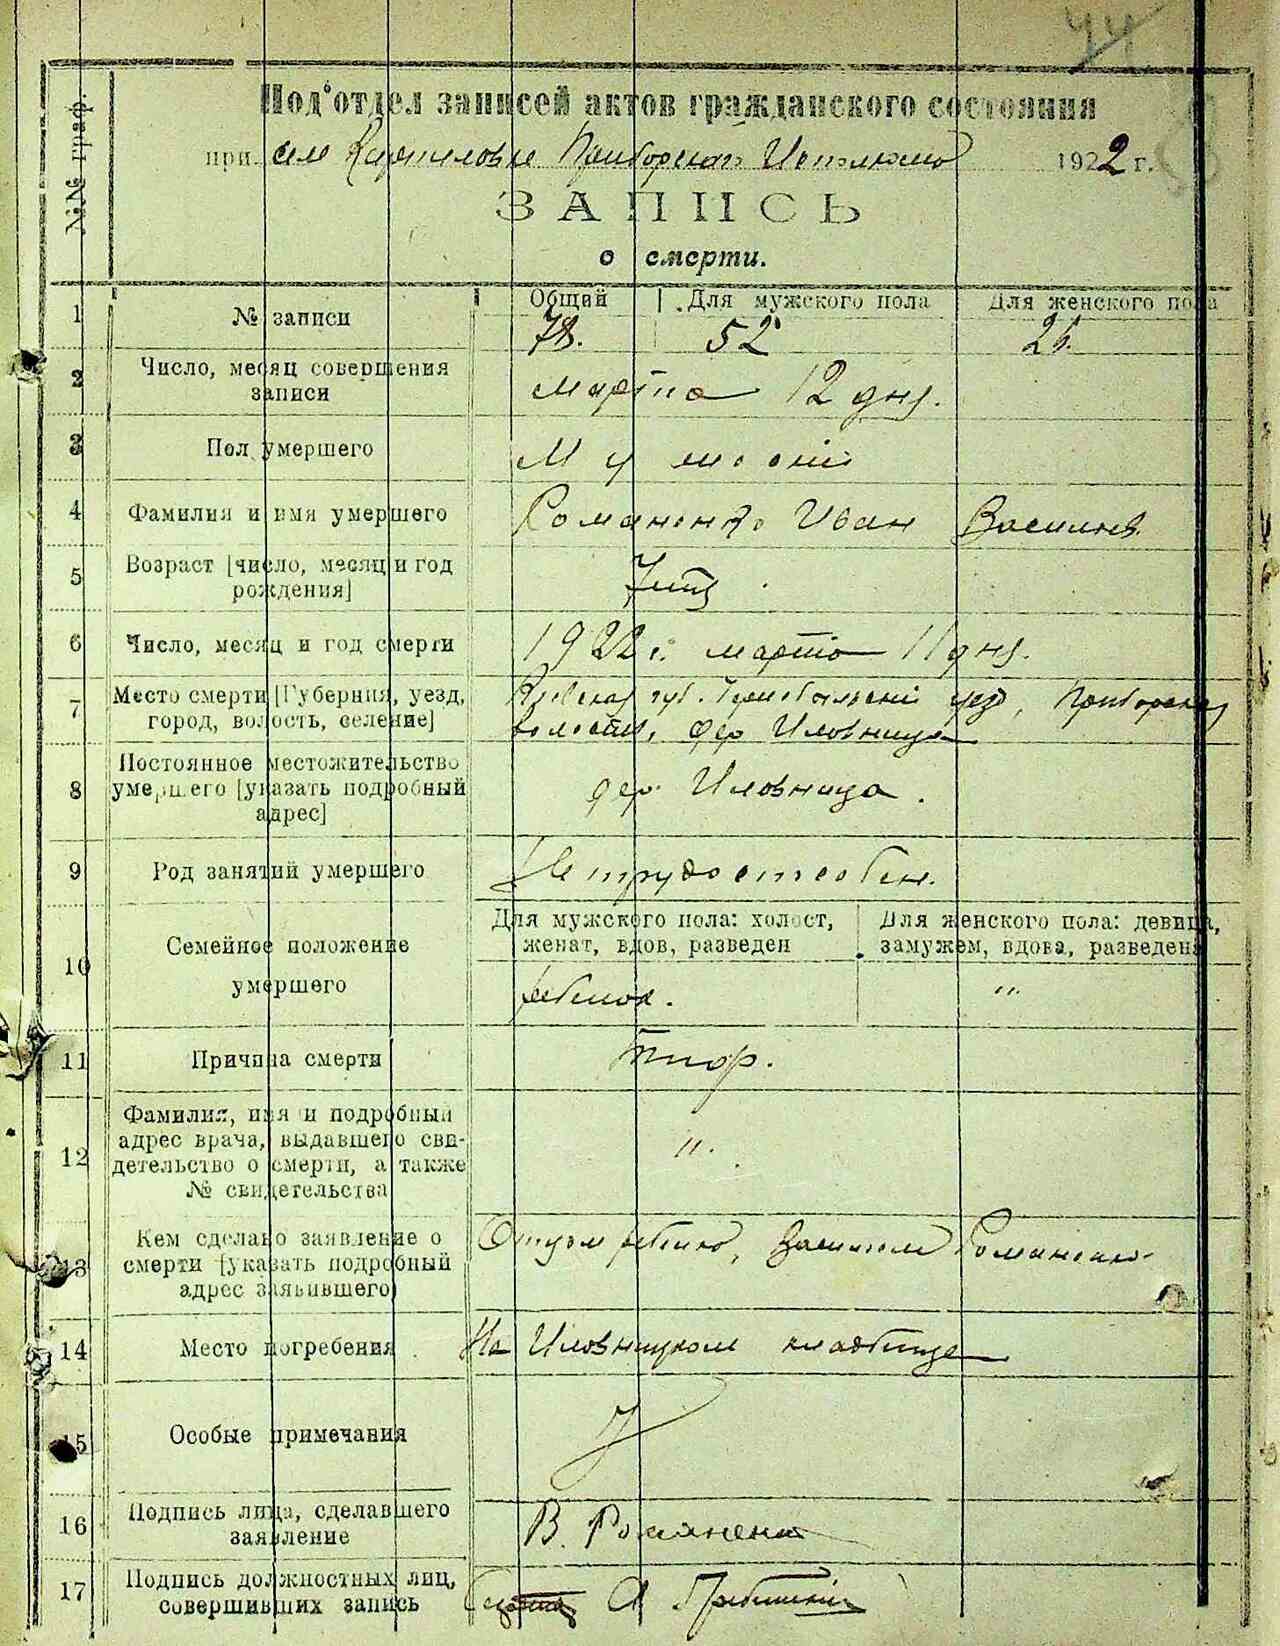 44
№№ граф.
Под'отдел записей актов гражданского состояния
при селе Карпиловке Приборской Исполкома 1922 г.
ЗАПИСЬ
о смерти.
Общий Для мужского пола Для женского пола
1 № записи 78. 52 26.
2 Число, месяц совершения
записи марта 12 дня.
3 Пол умершего Мужской
4 Фамилия и имя умершего Романенко Иван Васильев.
5 Возраст [число, месяц и год
рождения]
6 Число, месяц и год смерти 1922 г. марта 11 дня.
7 Место смерти [Губерния, уезд, Киевская губ. Чернобыльский уезд, Приборская
город, волость, селение] волость, дер Иловница
Постоянное местожительство
8 умершего [указать подробный дер. Иловница.
адрес]
9 Род занятий умершего Нетрудоспособен.
Для мужского пола: холост, Для женского пола: девица,
женат, вдов, разведен замужем, вдова, разведена
10 Семейное положение
умершего ребенок. "
11 Причина смерти тиф.
12 Фамилия, имя и подробный
адрес врача, выдавшего сви-
детельство о смерти, а также ".
№ свидетельства
13 Кем сделано заявление о Отцом ребенка, Василием Романенко
смерти [указать подробный
адрес заявившего]
14 Место погребения На Иловницком кладбище
15 Особые примечания
16 Подпись лица, сделавшего
заявление В. Романенко
17 Подпись должностных лиц,
совершивших запись А